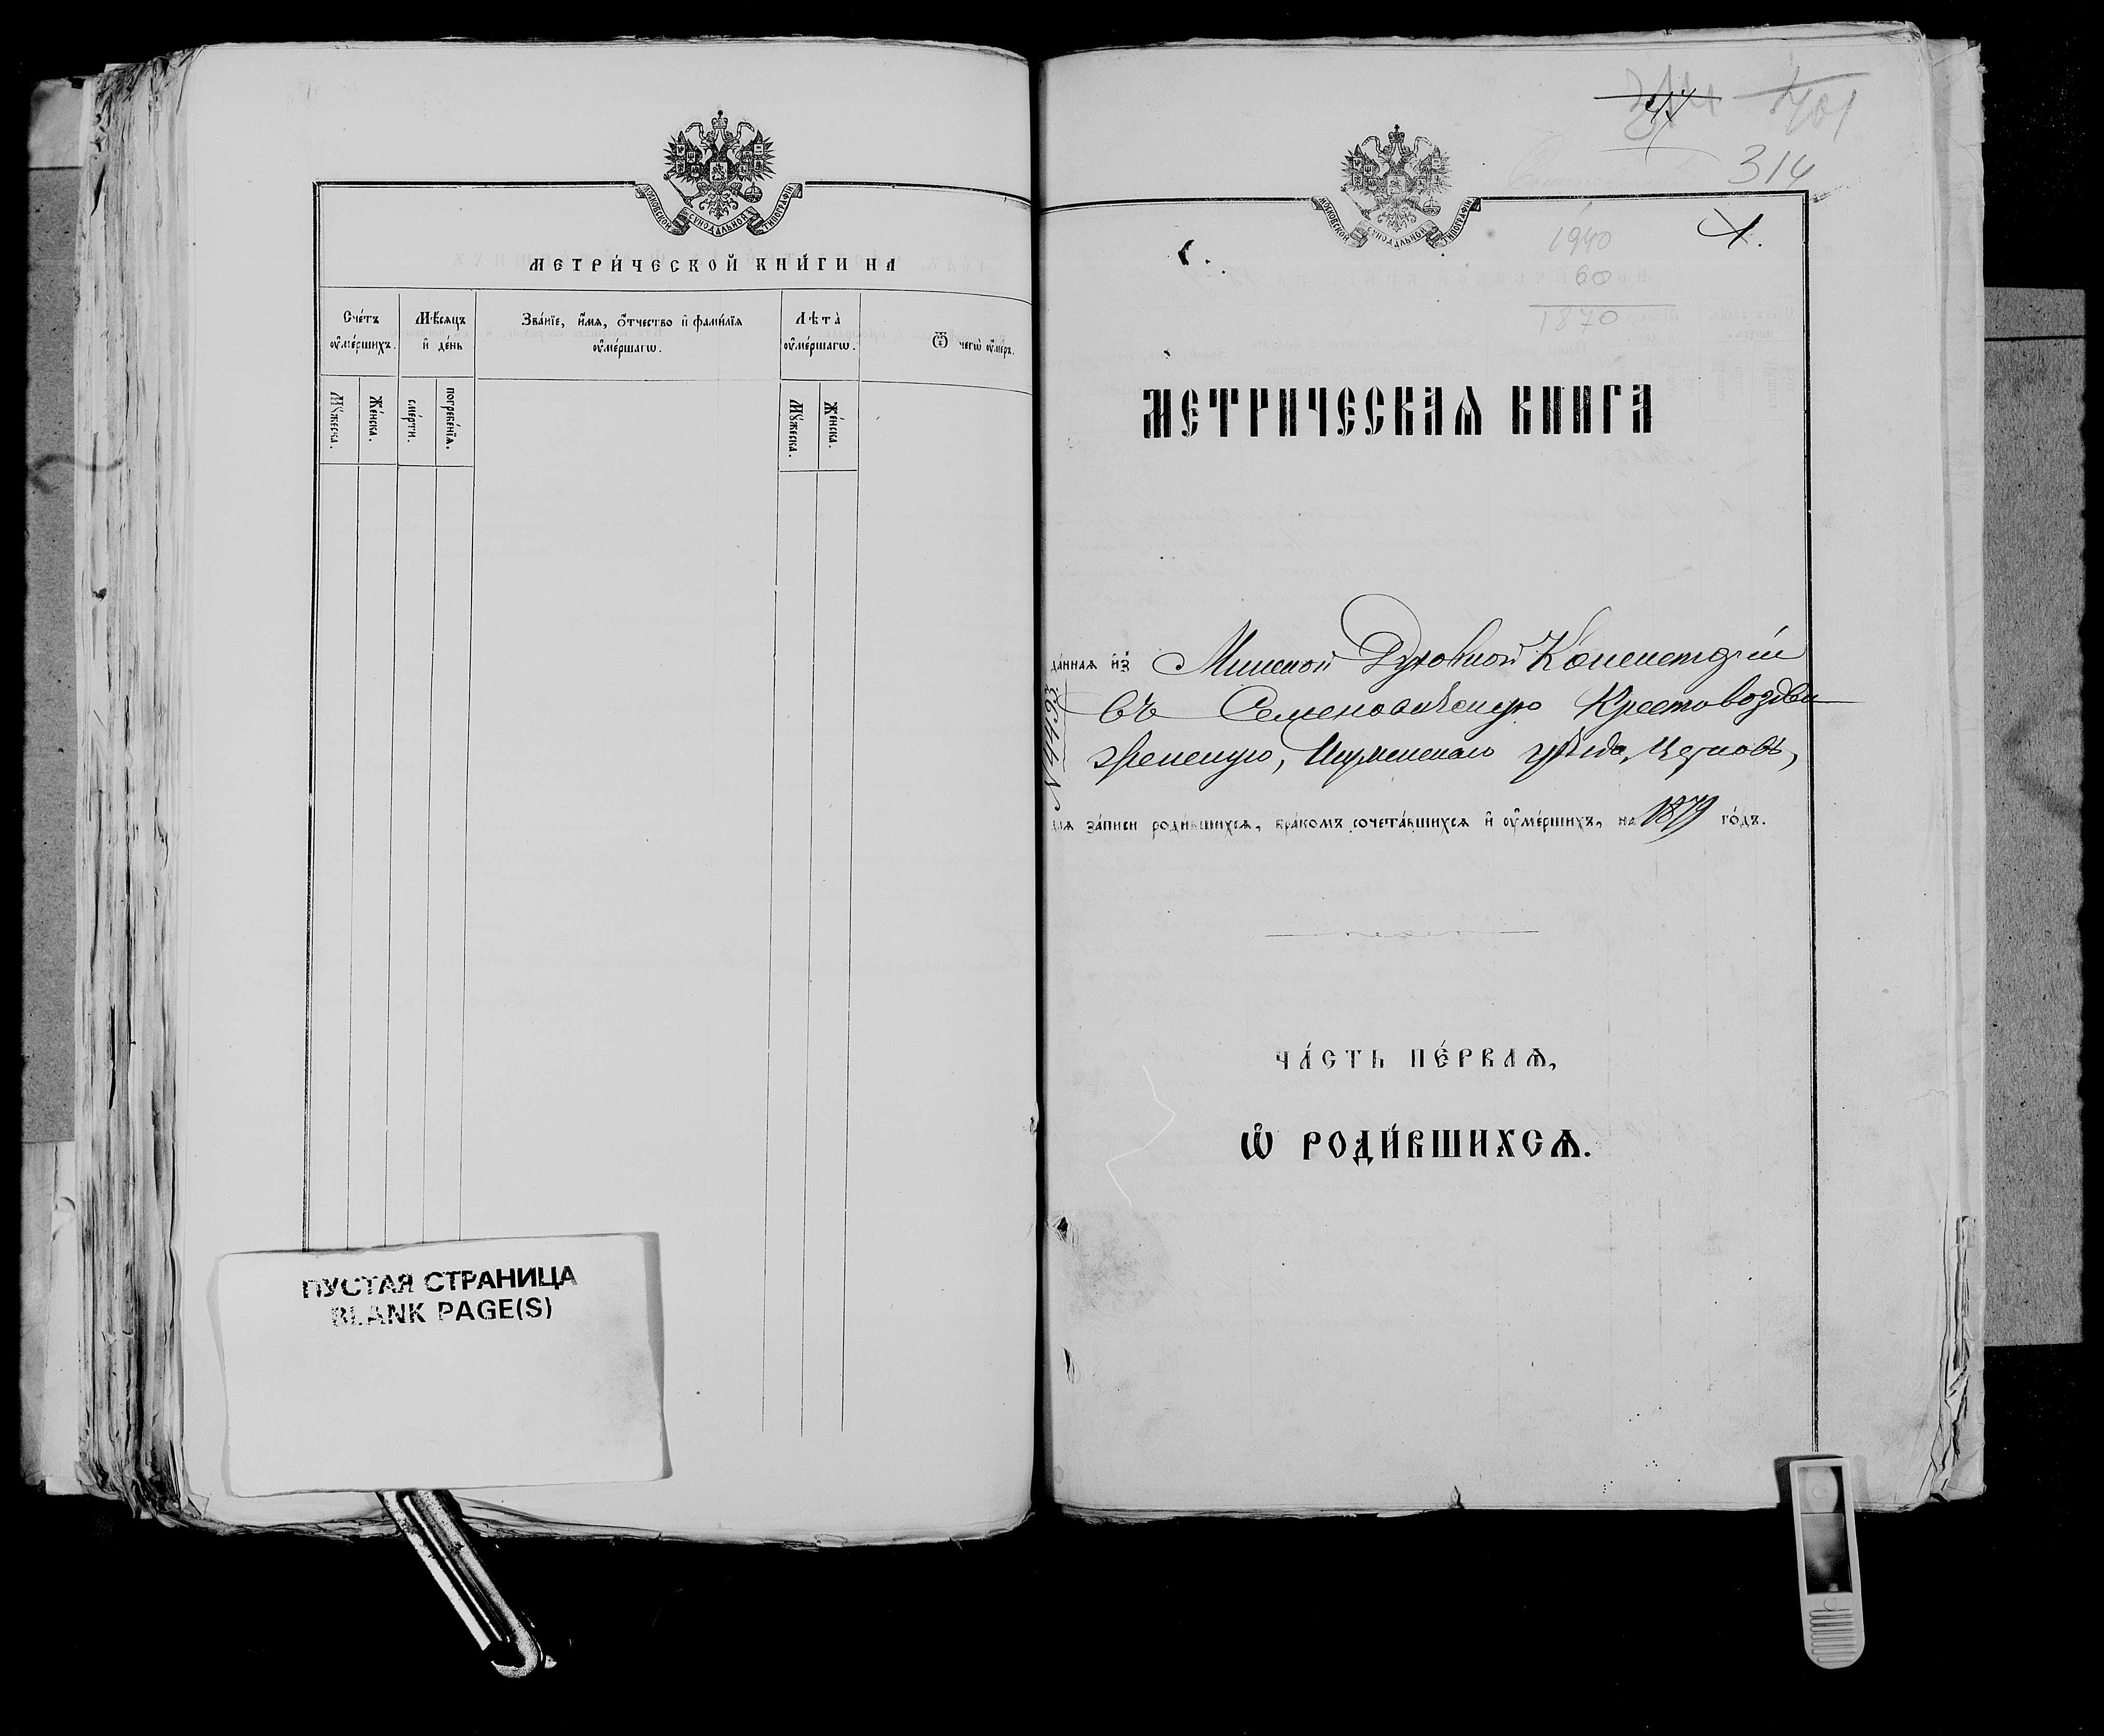 МОСКОВСКОЙ СУНОДАЛЬНОЙ ТИПОГРАФІИ
МЕТРИ́ЧЕСКОЙ КНИ́ГИ НА
Сче́тъ ᲂу҆ме́ршихъ.
Мѣ́сяцъ и҆ де́нь
Зва́нїе, и҆́мѧ, ѻ҆́тчество и҆ фамилїѧ ᲂу҆ме́ршагѡ.
Лѣта̀ ᲂу҆ме́ршагѡ.
Ѿ чегѡ̀ ᲂу҆́меръ.
Мꙋ́жеска.
Же́нска.
сме́рти.
погребе́нїѧ.
Мꙋ́жеска.
Же́нска.
ПУСТАЯ СТРАНИЦА
BLANK PAGE(S)
314
МОСКОВСКОЙ СУНОДАЛЬНОЙ ТИПОГРАФІИ
1940
60
1870
МЕТРИЧЕСКАѦ КНИГА
да́ннаѧ и҆з̾ Минской Духовной Консисторіи
въ Семеновичскую Крестовоздви
женскую, Игуменскаго уѣзда, Церковь,
№ 4493
для за́писи роди́вшихсѧ, бра́комъ сочета́вшихсѧ и҆ ᲂу҆ме́ршихъ, на 1879 го́дъ.
ЧА́СТЬ ПЕ́РВАѦ,
Ѡ҆ РОДИ́ВШИХСѦ.